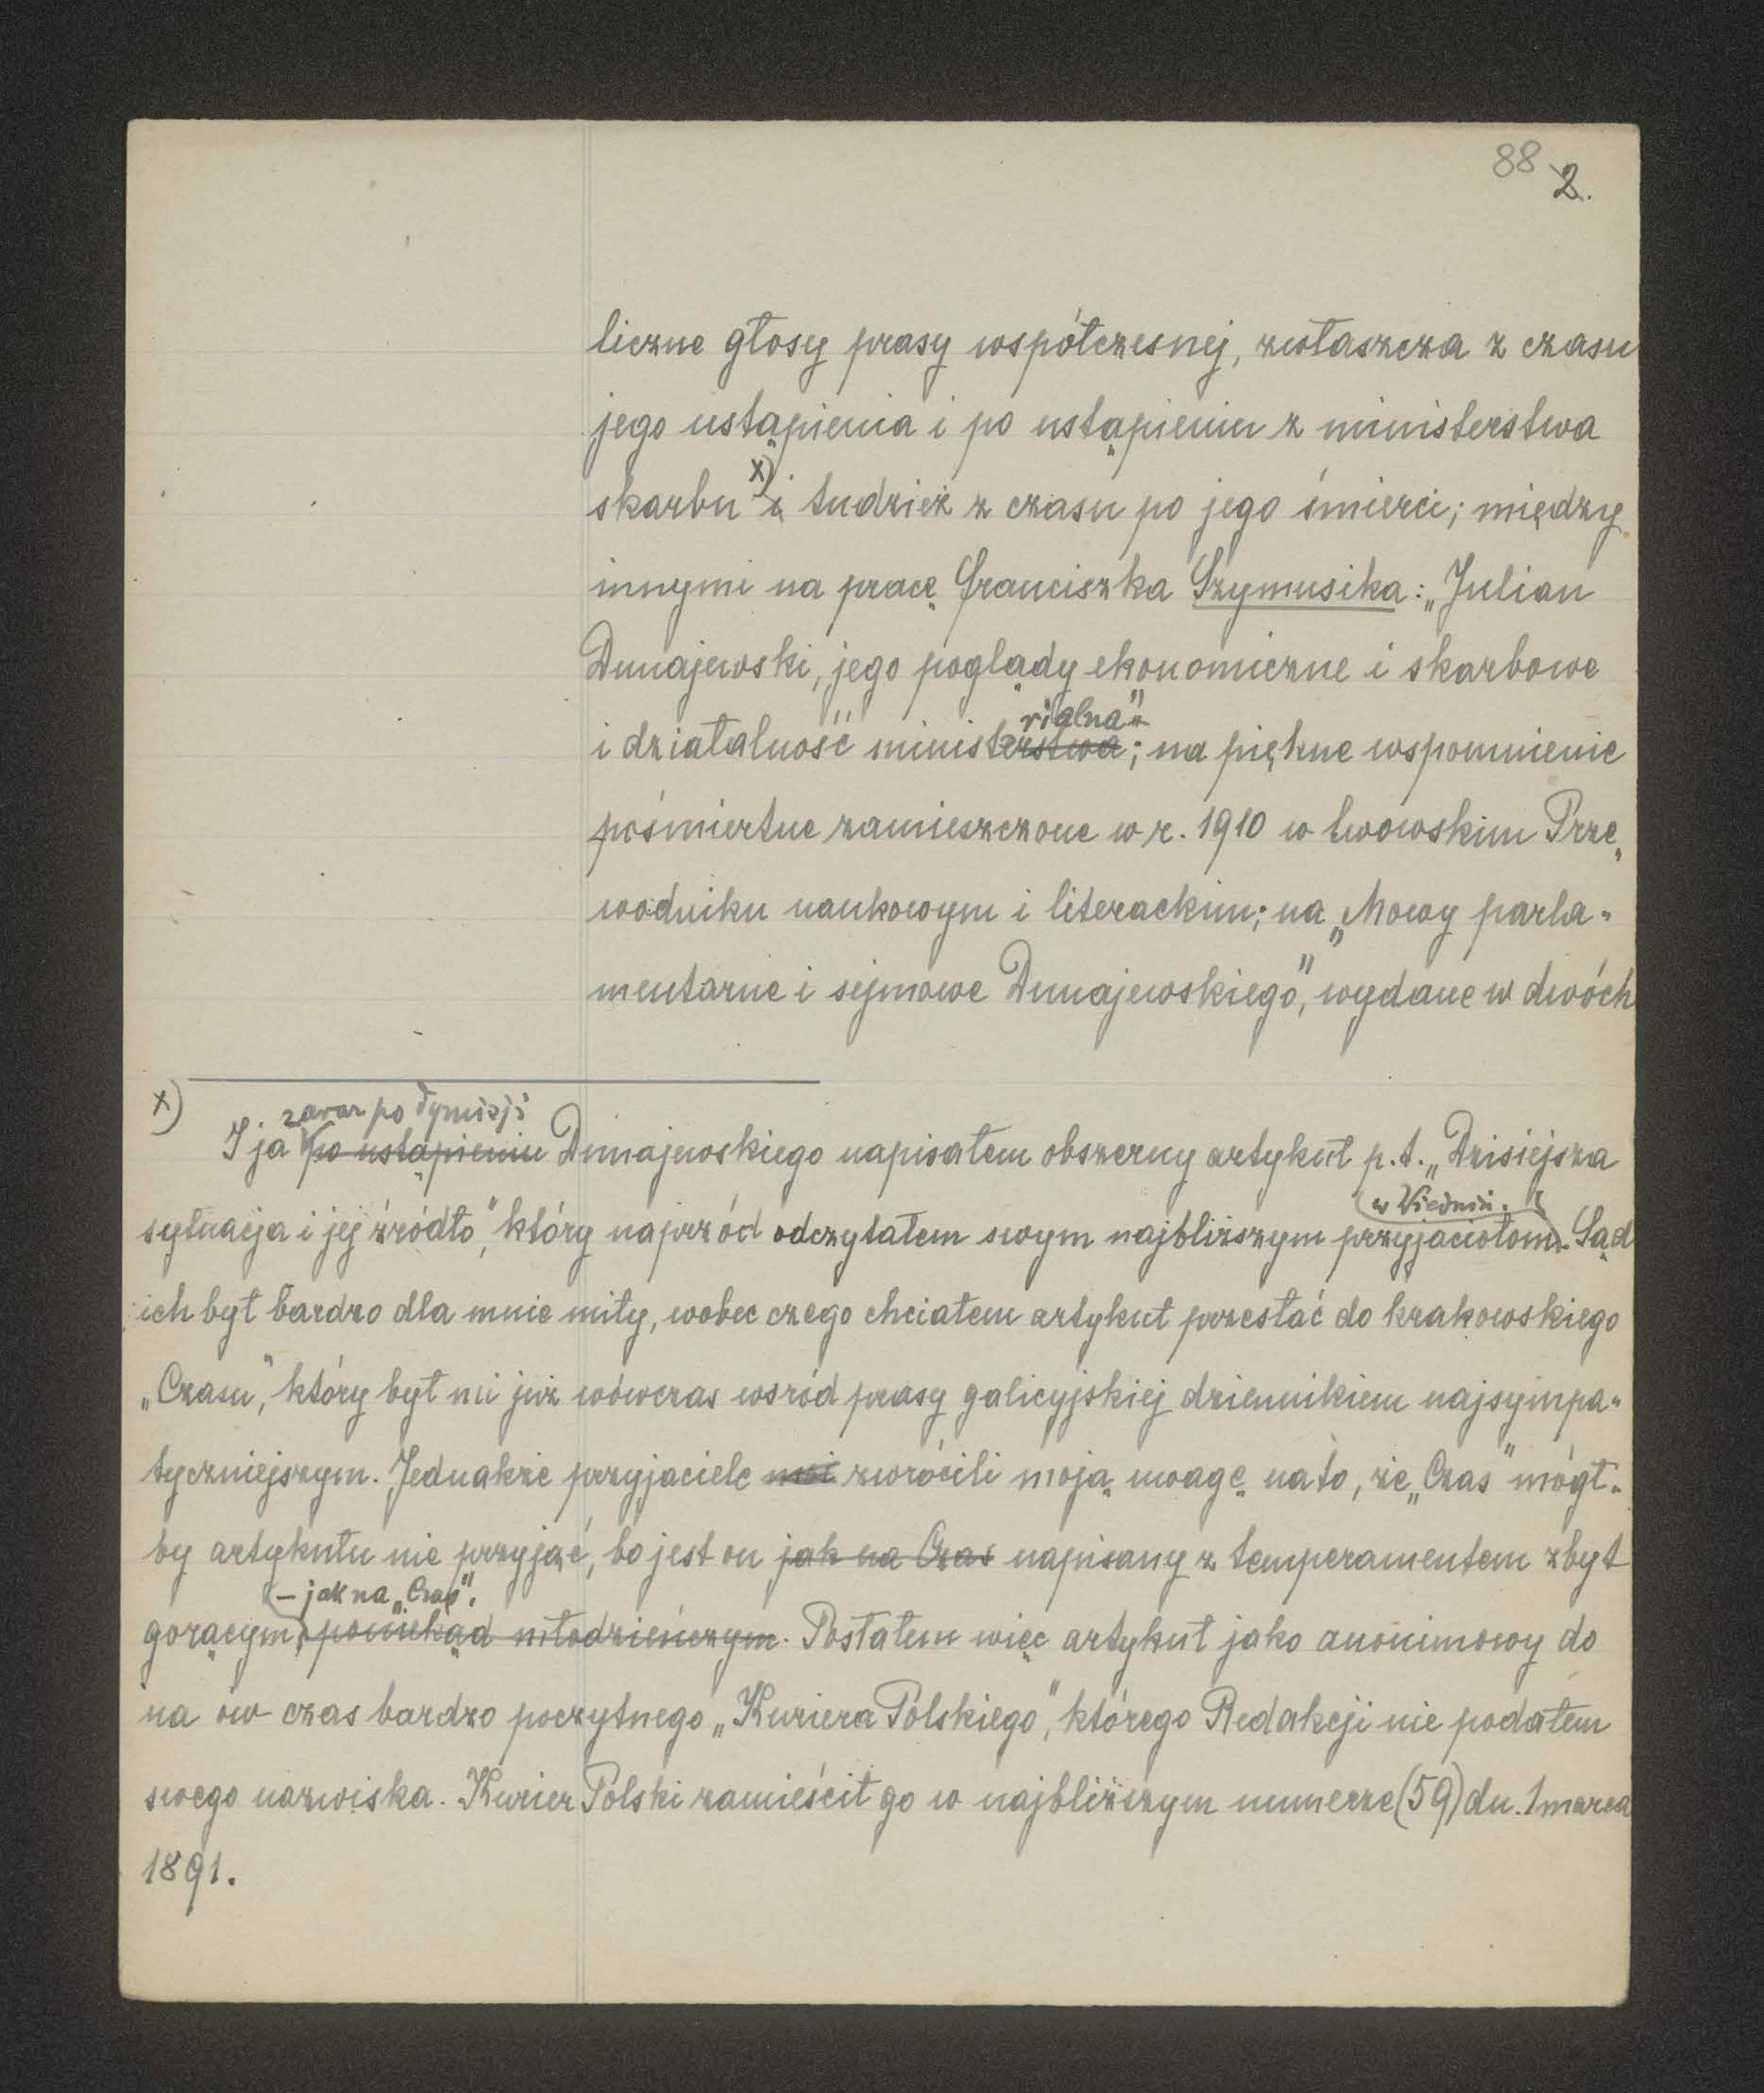 88 2.
liczne głosy prasy współczesnej, zwłaszcza z czasu
jego ustąpienia i po ustąpieniu z ministerstwa
skarbu x) i tudzież z czasu po jego śmierci; między
innymi na pracę Franciszka Szymusika: „Julian
Dunajewski, jego poglądy ekonomiczne i skarbowe
rialna"
i działalność ministerstwa; na piękne wspomnienie
pośmiertne zamieszczone w r. 1910 w lwowskim Prze„
wodniku naukowym i literackim; na „Mowy parla-
mentarne i sejmowe Dunajewskiego", wydane w dwóch
x) zaraz po dymisji
I ja po ustąpieniu Dunajewskiego napisałem obszerny artykuł p.t. „Dzisiejsza
w Wiedniu.
sytuacja i jej źródło", który naprzód odczytałem swym najbliższym przyjaciołom. Sąd
ich był bardzo dla mnie miły, wobec czego chciałem artykuł przesłać do krakowskiego
„Czasu", który był mi już wówczas wsród prasy galicyjskiej dziennikiem najsympa-
tyczniejszym. Jednakże przyjaciele moi zwrócili moją uwagę na to, że „Czas" mógł-
by artykułu nie przyjąć, bo jest on jak na Czas napisany z temperamentem zbyt
– jak na „Czas".
gorącym, poniekąd młodzieńczym. Posłałem więc artykuł jako anonimowy do
na ów czas bardzo poczytnego „Kuriera Polskiego", którego Redakcji nie podałem
swego nazwiska. Kurier Polski zamieścił go w najbliższym numerze (59) dn. 1 marca
1891.